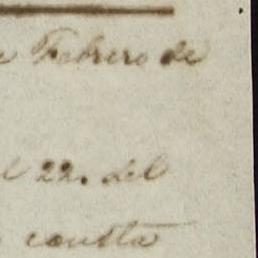 e Febrero de
l 22. del
consta